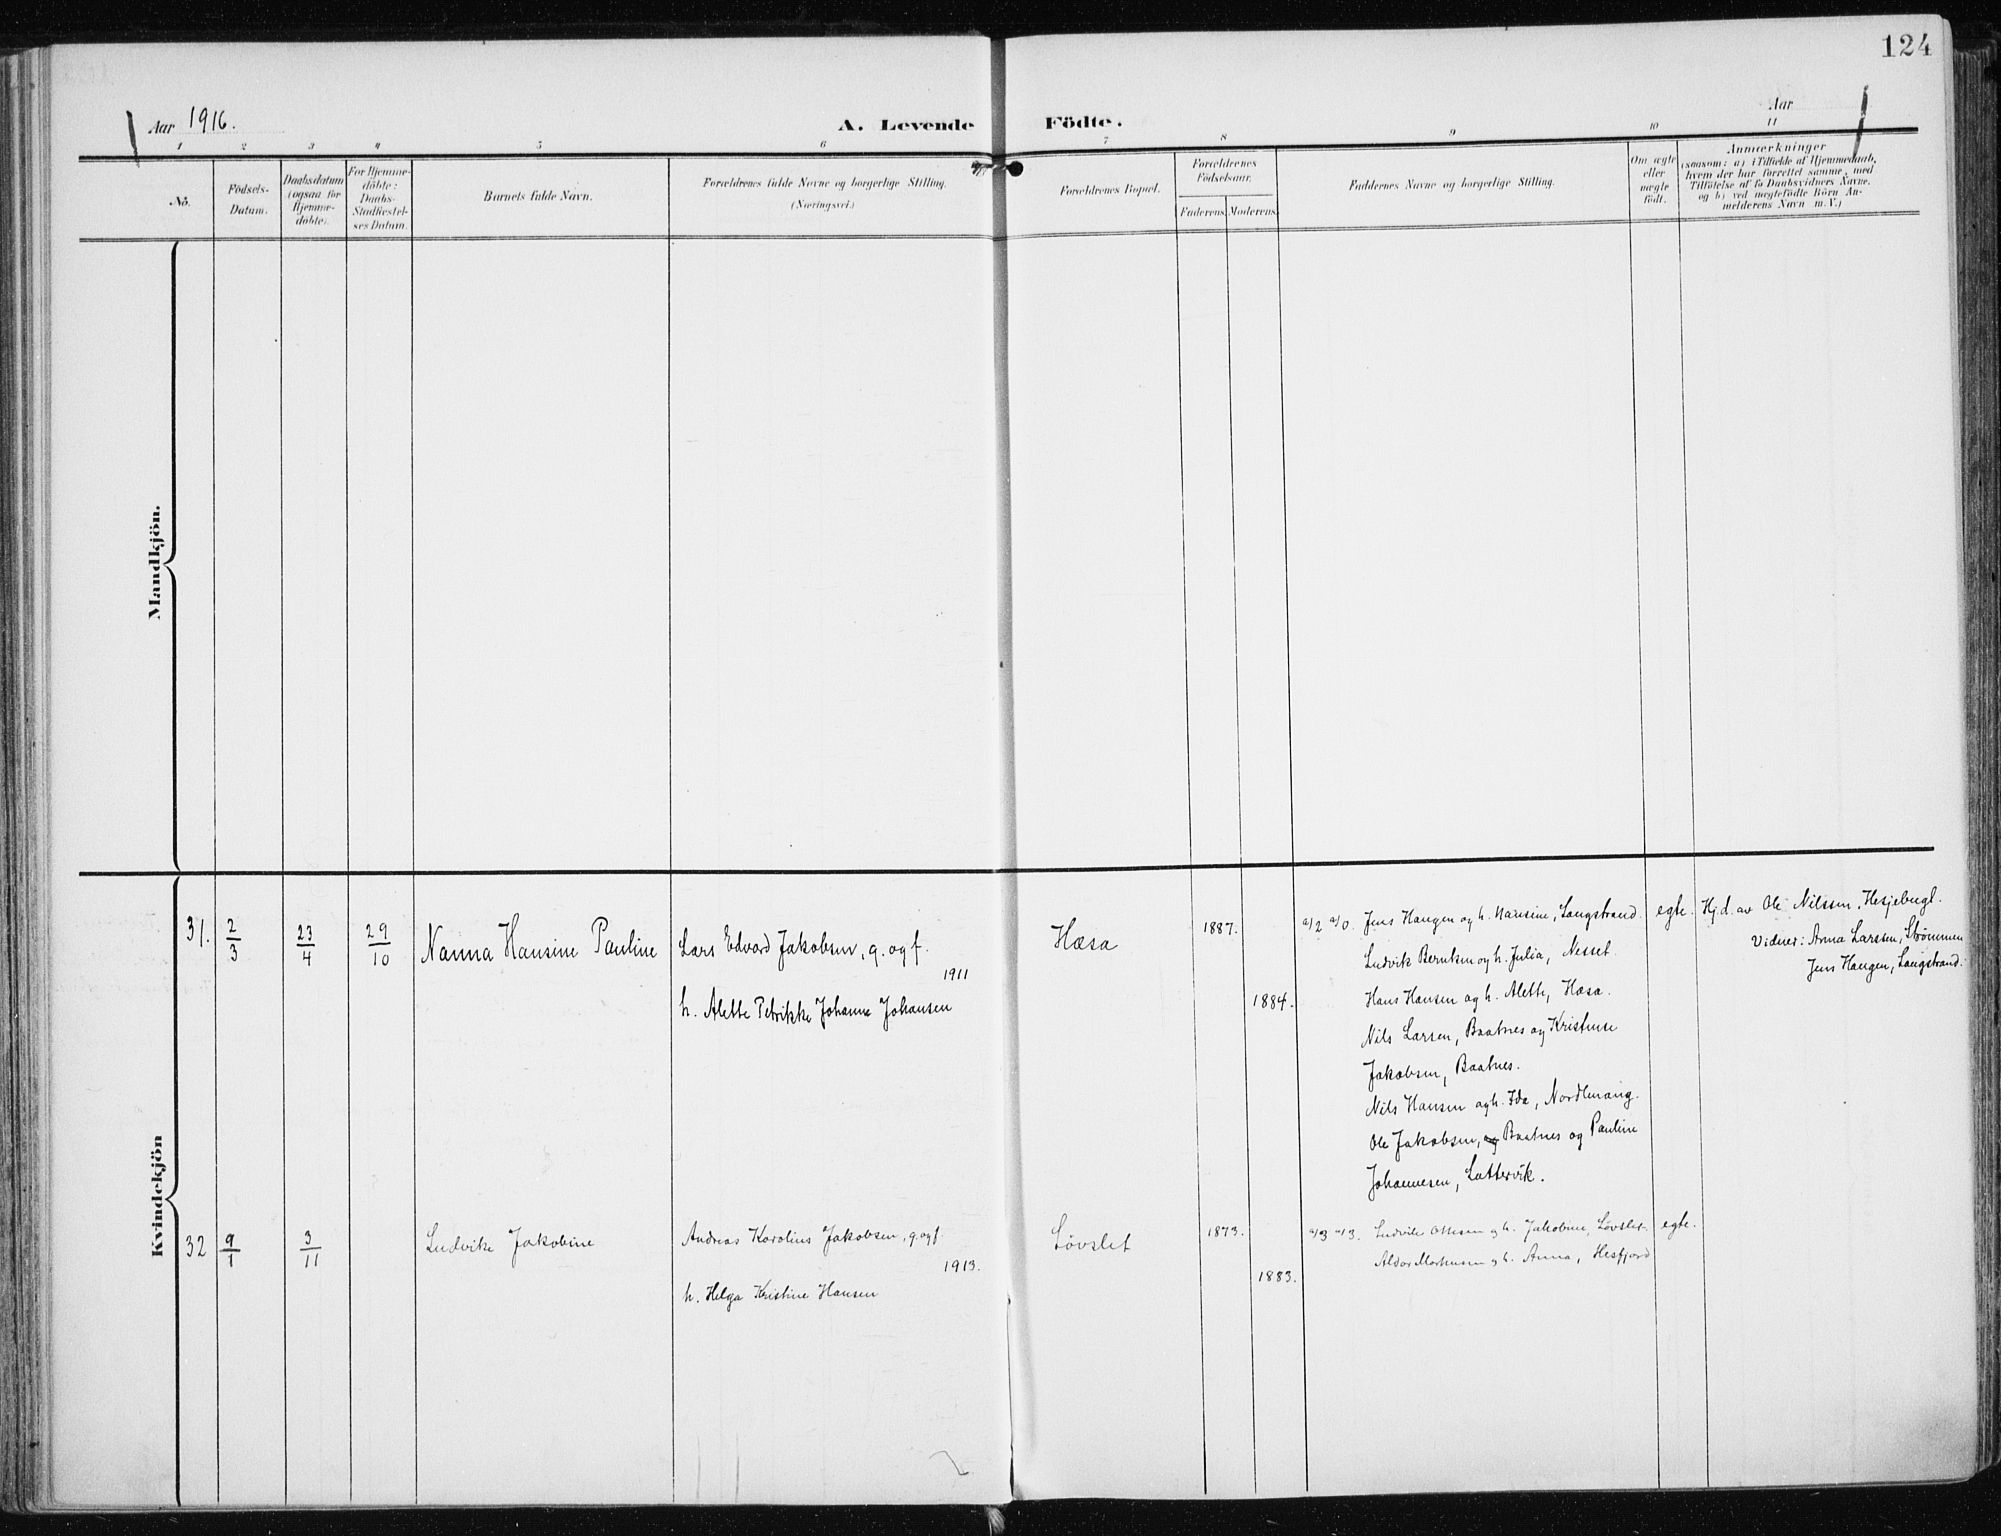 124
Aar 1916.
A. Levende Födte.
Aar
1 2 3 4 5 6 7 8 9 10 11
No.
Födsels-
Datum.
Daabsdatum
(ogsaa for
Hjemme-
döbte).
For Hjemme-
döbte:
Daabs-
Stadfæstel-
ses Datum.
Barnets fulde Navn.
Forældrenes fulde Navne og borgerlige Stilling.
(Næringsvei.)
Forældrenes Bopæl.
Forældrenes
Födselsaar.
Faderens. Moderens.
Faddernes Navne og borgerlige Stilling.
Om ægte
eller
uægte
födt.
Anmærkninger
(saasom: a) i Tilfælde af Hjemmedaab,
hvem der har forrettet samme, med
Tilföielse af to Daabsvidners Navne,
og b) ved uægtefödte Börn An-
melderens Navn m. V.)
Mandkjön.
Kvindekjön
31. 2/3 23/4 29/10 Nanna Hansine Pauline
Lars Edvard Jakobsen, g. og f.
1911
h. Alette Petrikke Johanne Johansen
Hæsa
1887.
1884.
Jens Haugen og h. Nansine, Langstrand.
Ludvik Berntsen og h. Julia, Nesset.
Hans Hansen og h. Alette, Hæsa.
Nils Larsen, Baatnes og Kristine
Jakobsen, Baatnes.
Nils Hansen og h. Ida, Nordlenang.
Ole Jakobsen, og Baatnes og Pauline
Johannesen, Lattervik.
egte.
Hjd. av Ole Nilssen, Hesjebugt.
Vidner: Anna Larsen, Strømmen
Jens Haugen, Langstrand.
32 9/1 3/11 Ludvike Jakobine
Andreas Karolius Jakobsen, g. og f.
1913.
h. Helga Kristine Hansen
Løvslet
1873.
1883.
Ludvik Ottesen og h. Jakobine, Løvslet.
Aldor Markussen og h. Anna, Hesfjord
egte.